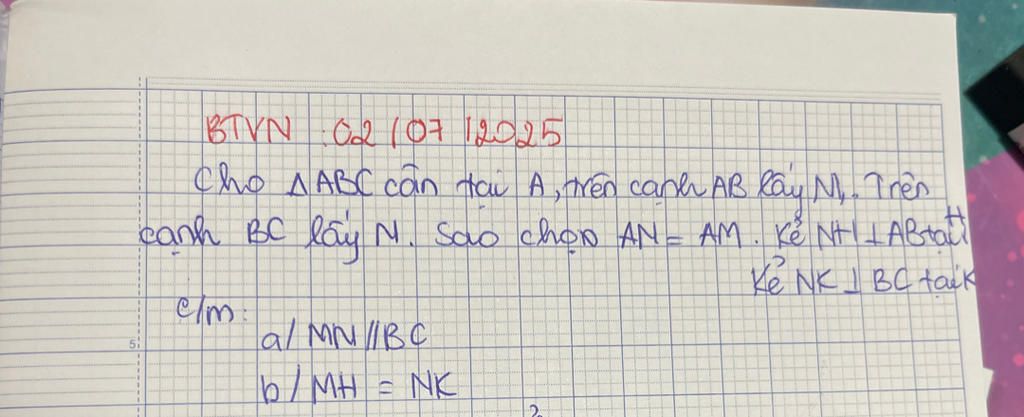 BTVN : 02/07/2025
Cho ΔABC cân tại A, trên cạnh AB lấy M. Trên
cạnh BC lấy N. Sao chọn AN = AM. Kẻ NH ⊥ AB tại H
Kẻ NK ⊥ BC tại K
c/m:
a/ MN // BC
b/ MH = NK